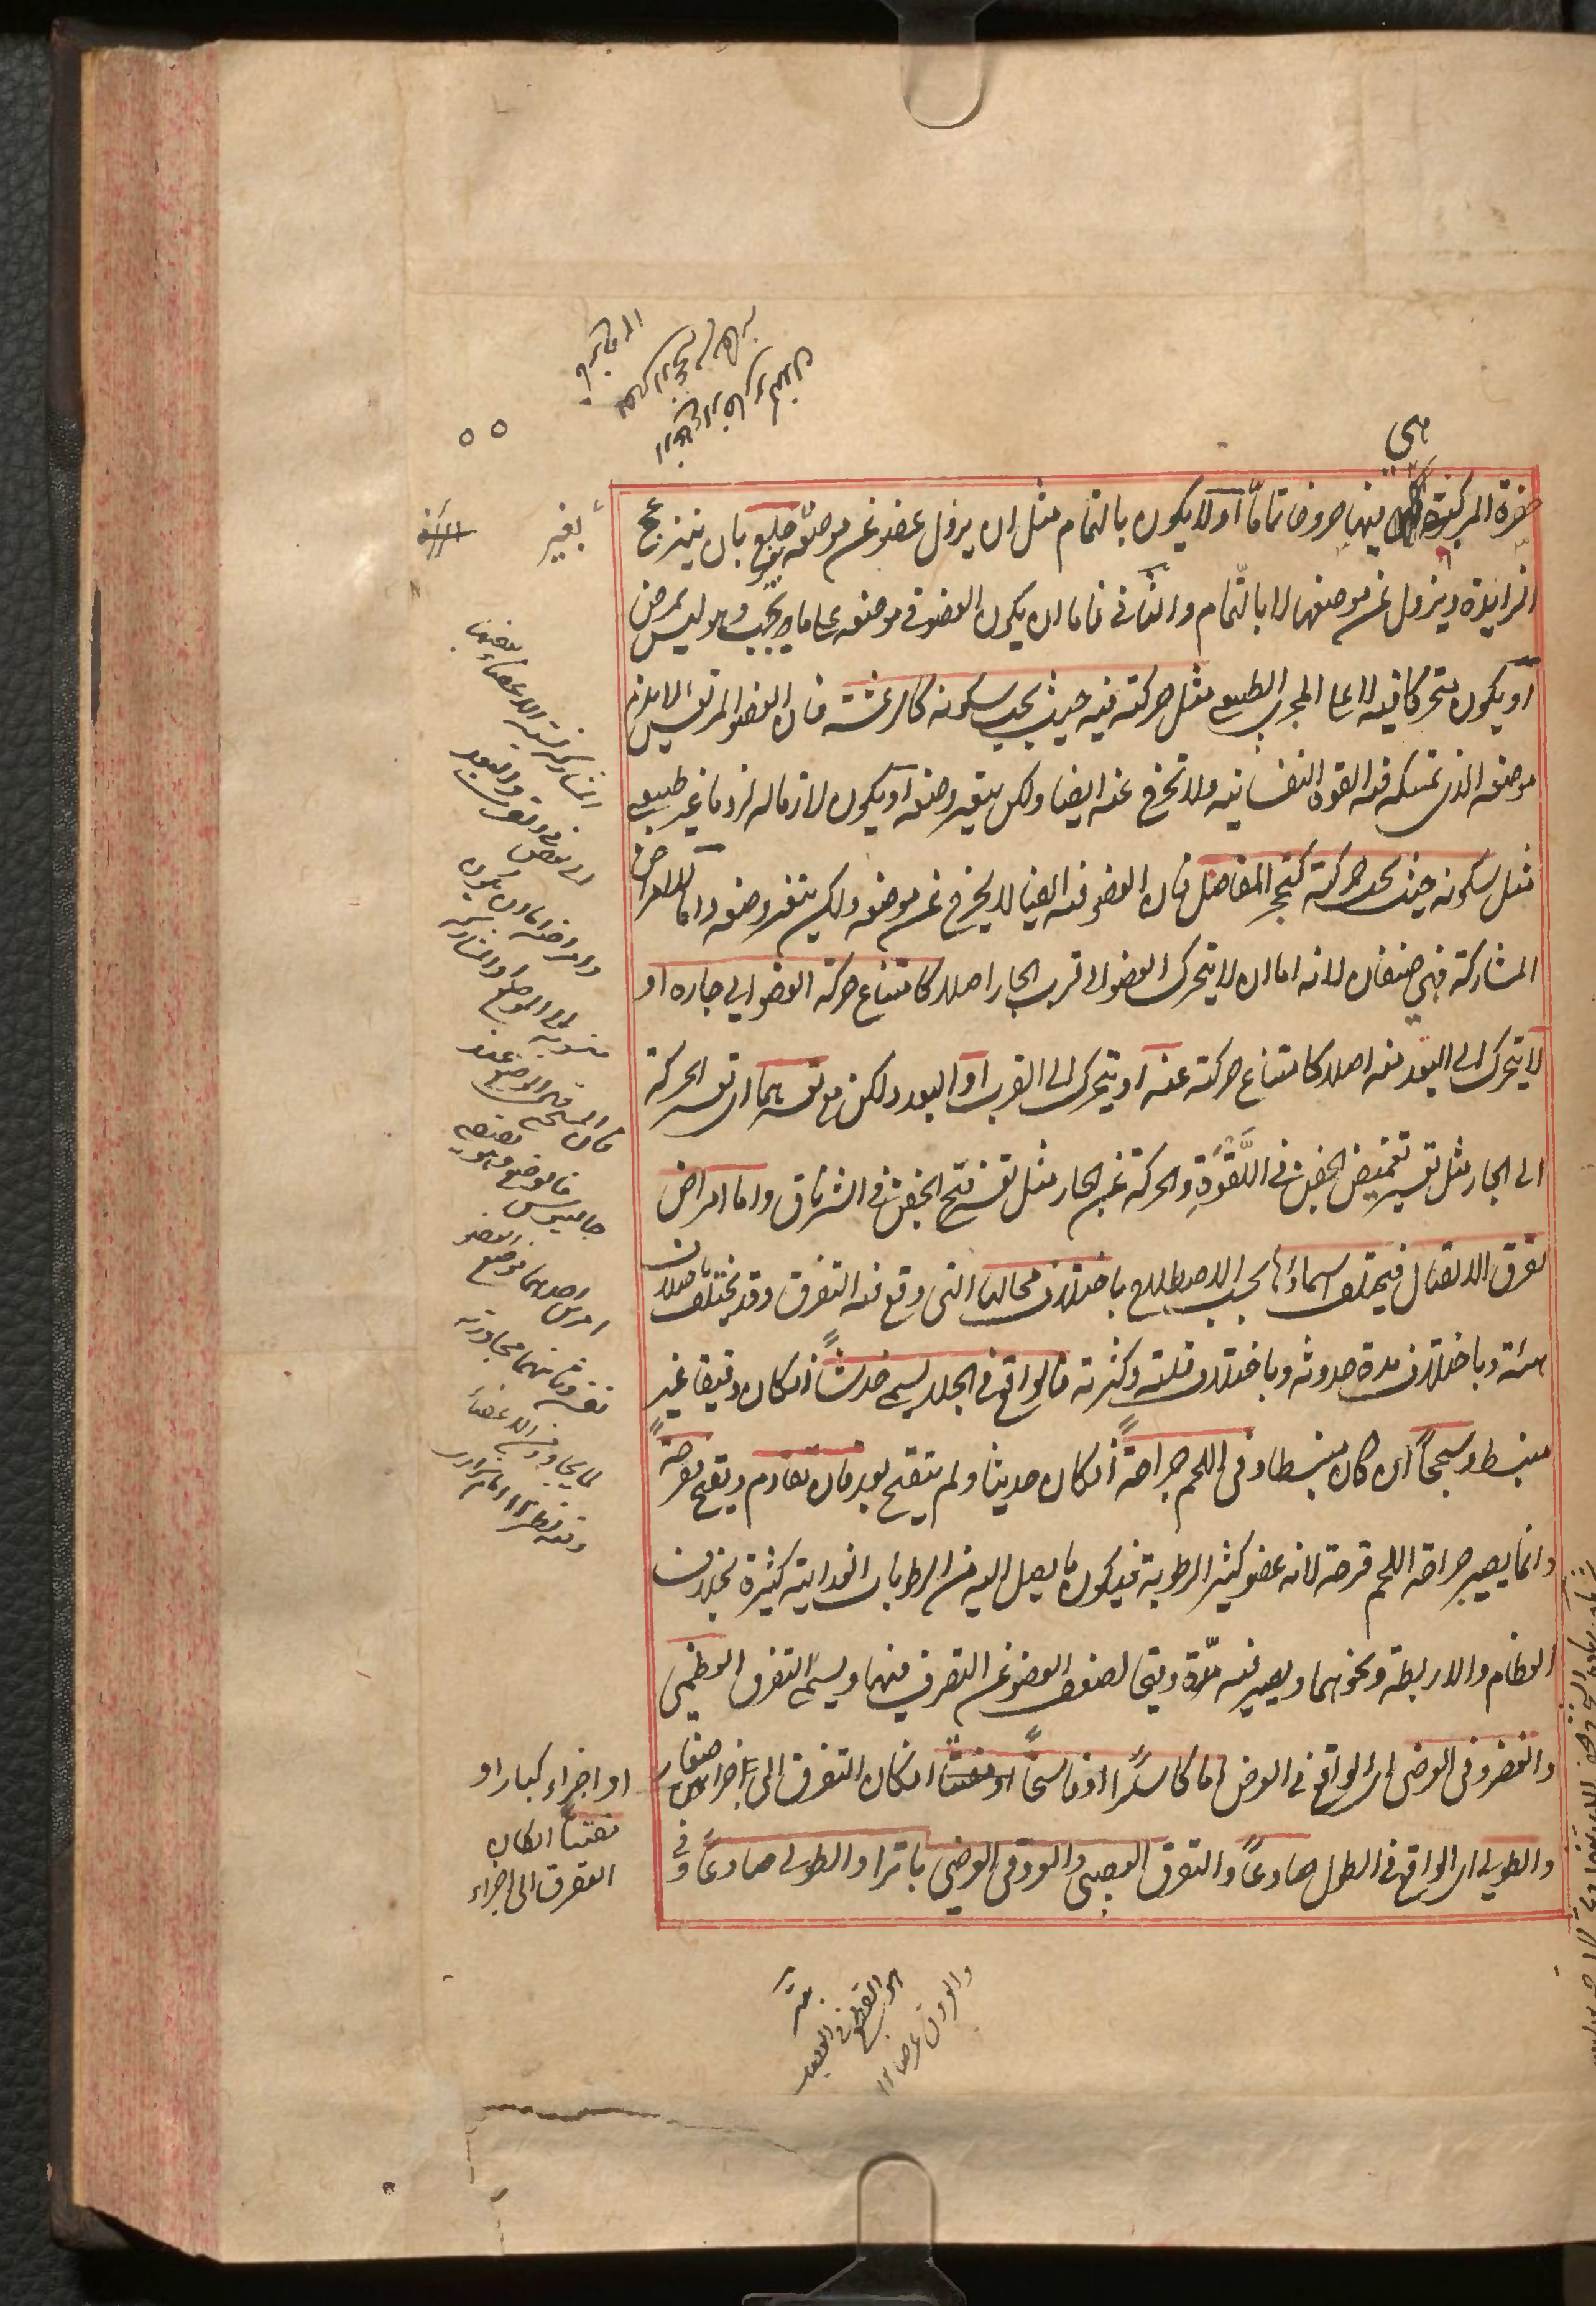 هي
حفرة المركبة فيها خروجا تاما أو لا يكون بالتمام مثل ان يزول عضو عن موضعه بغير خلع بان ينزعج
الزايدة ويزول عن موضعها لا بالتمام والثاني فاما ان يكون العضو في موضعه على ما يجب وهو ليس بمرض
أو يكون متحركا فيه لا على المجرى الطبيعي مثل حركته فيه حيث يجب سكونه كالرعشة فان العضو المرتعش لا يلزم
موضعه الذي تمسكه فيه القوة النفسانية ولا تخرج عنه ايضا ولكن يتغير وضعه أو يكون لازما له لزوما غير طبيعي
مثل سكونه حيث يجب حركته كتحجر المفاصل فان العضو فيه ايضا لا يخرج عن موضعه ولكن يتغير وضعه واما امراض
المشاركة فهي صنفان لانه اما ان لا يتحرك العضو الى قرب الجار اصلا كامتناع حركة العضو الى جاره او
لا يتحرك الى البعد منه اصلا كامتناع حركته عنه او يتحرك الى القرب او البعد ولكن مع تعسرهما اي تعسر الحركة
الى الجار مثل تعسر تغميض الجفن في اللقوة والحركة عن الجار مثل تعسر فتح الجفن في الشرناق واما امراض
تفرق الاتصال فيختلف اسماؤها بحسب الاصطلاح باختلاف محالها التي وقع فيه التفرق وقد يختلف باختلاف
هيئته وباختلاف مدة حدوثه وباختلاف قلته وكثرته فالواقع في الجلد يسمى خدشا ان كان دقيقا غير
منبسط وسحجا ان كان منبسطا وفي اللحم جراحة ان كان حديثا ولم يتقيح بعد فان تقادم وتقيح قرحة
وانما يصير جراحة اللحم قرحة لانه عضو كثير الرطوبة فيكون ما يصل اليه من الرطوبات الغذائية كثيرة بخلاف
العظام والاربطة ونحوهما ويصير فيه مدة وقيحا لضعف العضو عن التصرف فيهما ويسمى التفرق العظمي
والغضروفي العرضي اي الواقع في العرض اما كاسرا او فاسخا ان كان التفرق الى اجزاء صغار
والطولي اي الواقع في الطول صادعا والتفرق العصبي والعروقي العرضي باترا والطولي صادعا وفي
او اجزاء كبار او
مفتتا ان كان
التفرق الى اجزاء
المشاركة نسبة الاعضاء بعضها
الى بعض في القرب والبعد
وامراضه اما ان يكون
منسوبة الى الموضع او المشاركة
جالينوس
احدهما موضع العضو
وثانيهما مجاورته
لما يجاوره من الاعضاء
هو القطع في العصب
والعروق عرضا ١٢